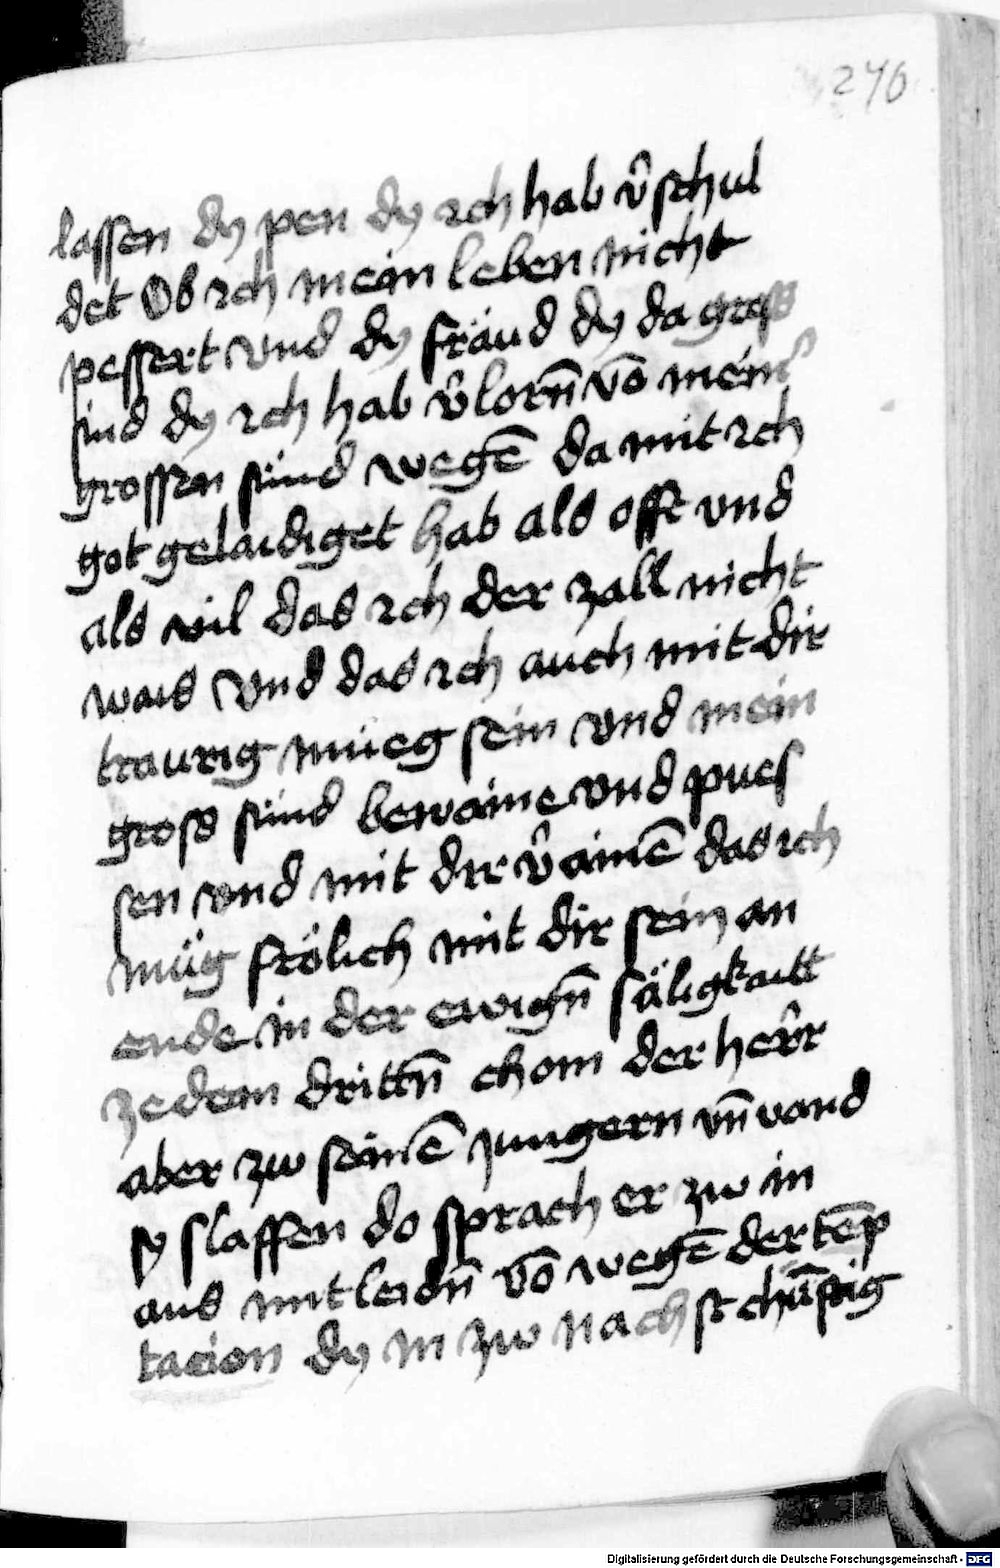 276
lassen dy pen dy ich hab v̂schul
det Ob ich mein leben nicht
pessert vnd dy fräud dy da gross
sind dy ich hab v̂lorn̄ vō mein̂
grossen sünd wegē da mit ich
got gelaidiget hab als offt vnd
als vil das ich der zall nicht
wais Vnd das ich auch mit dir
traurig müeg sein vnd mein
gross sünd bewaine vnd pues
sen vnd mit dir v̂ainē das ich
müg frölich mit dir sein an
ende in der ewign̄ säligkaitt
ze dem drittn̄ chom der her̂r
aber zw seinē jungern vn̄ vand
sy slaffen do sprach er zw in
aus mitleidn̄ vō wegē der tēp
tacion dy in zw nachst chūftig
Digitalisierung gefördert durch die Deutsche Forschungsgemeinschaft - DFG